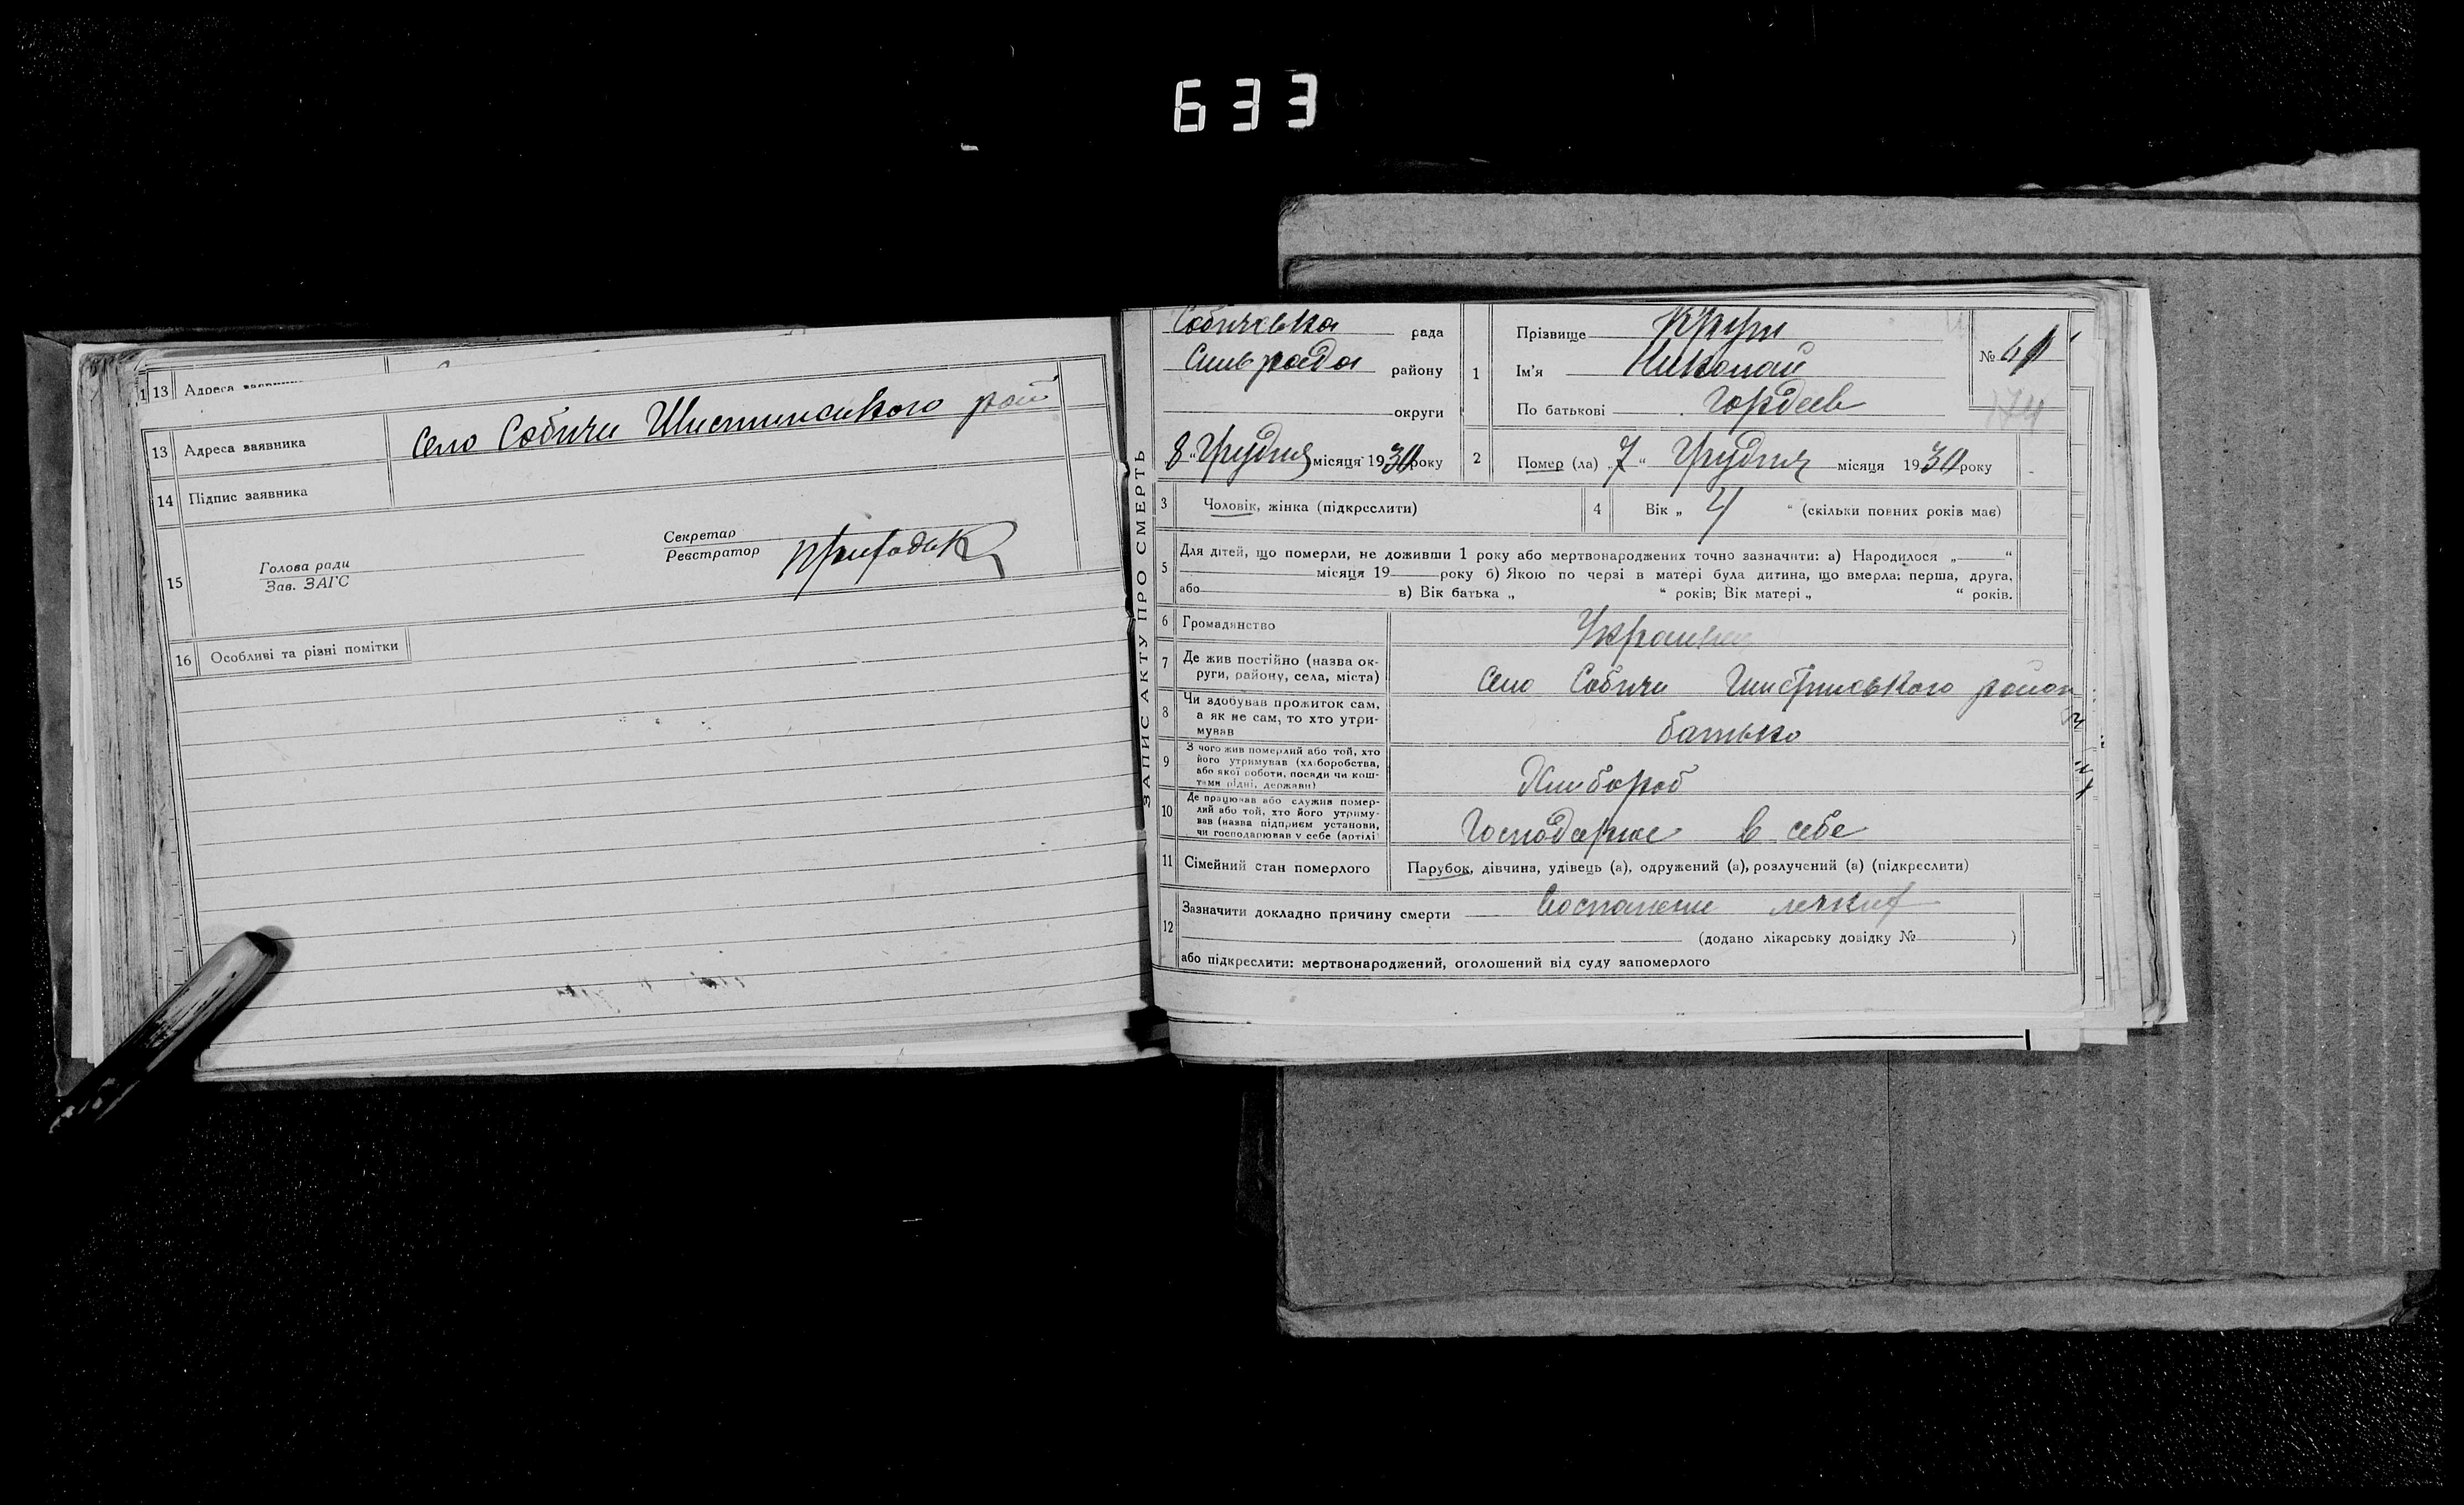 633
13 Адреса
13 Адреса заявника село Собичи Шистинського рай
14 Підпис заявника
15 Голова ради
Зав. ЗАГС
Секретар
Реєстратор
16 Особливі та різні помітки
ЗАПИС АКТУ ПРО СМЕРТЬ
Собичевка рада
Сильрада району
округи
8 " Грудня місяця 1930 року
1 Прізвище
Ім'я Николай
По батькові Гордеев
№
174
2 Помер (ла) „7" Грудня місяця 1930 року
3 Чоловік, жінка (підкреслити)
4 Вік „ 4 " (скільки повних років має)
5 Для дітей, що померли, не доживши 1 року або мертвонароджених точно зазначити: а) Народилося „ "
місяця 19 року б) Якою по черзі в матері була дитина, що вмерла: перша, друга,
або в) Вік батька „ " років; Вік матері „ " років.
6 Громадянство
7 Де жив постійно (назва округи, району, села, міста) село Собичи Шистинського район
8 Чи здобував прожиток сам, а як не сам, то хто утримував батько
9 З чого жив померлий або той, хто його утримував (хліборобства, або якої роботи, посади чи коштами рідні, держави) Хлибороб
10 Де працював або служив померлий або той, хто його утримував (назва підприєм установи, чи господарював у себе (артілі) Господарює в себе
11 Сімейний стан померлого Парубок, дівчина, удівець (а), одружений (а), розлучений (а) (підкреслити)
12 Зазначити докладно причину смерти Воспаление легких
(додано лікарську довідку № )
або підкреслити: мертвонароджений, оголошений від суду запомерлого